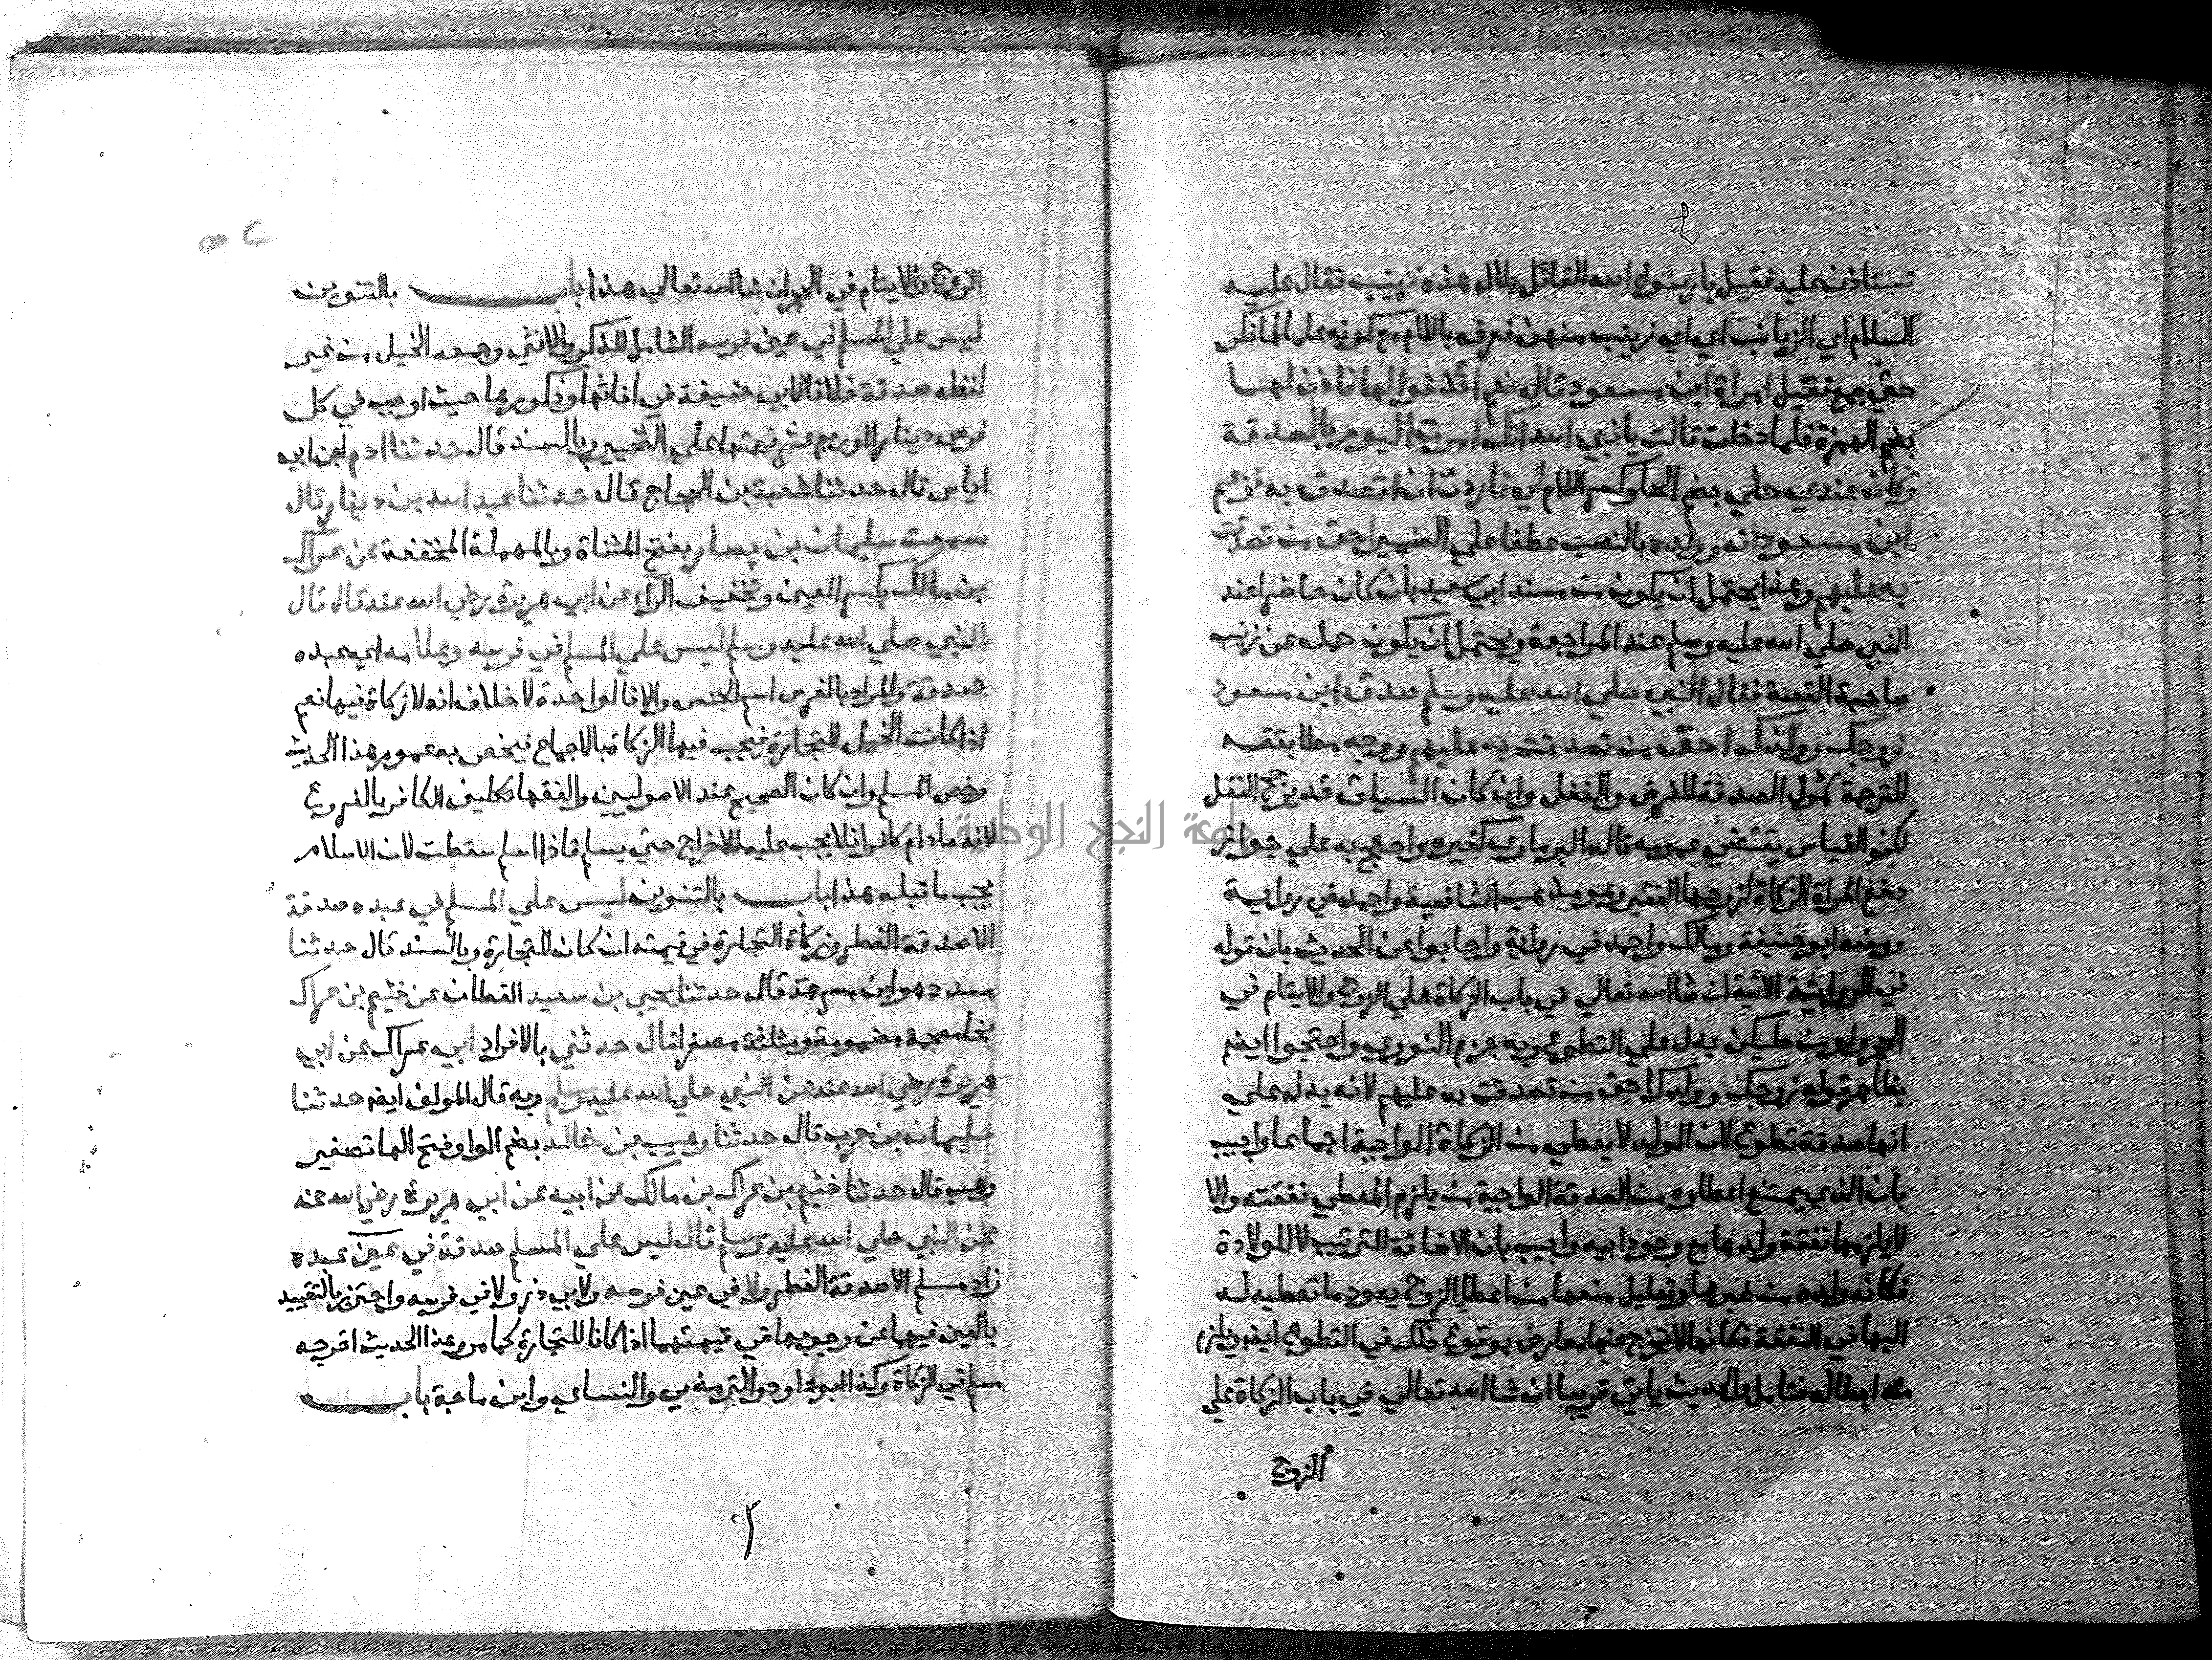 تستاذن عليه فقيل يا رسول الله القائل بلال هذه زينب فقال عليه
السلام اي الزيانب اي اي زينب منهن فعرف باللام مع كونه علما لما نكر
حتي جمع فقيل امراة ابن مسعود قال نعم ائذنوا لها فاذن لها
بضم الهمزة فلما دخلت قالت يا نبي الله انك امرت اليوم بالصدقة
وكان عندي حلي بضم الحا وكسر اللام لي فاردت ان اتصدق به فزعم
ابن مسعود انه وولده بالنصب عطفا علي الضمير احق من تصدقت
به عليهم وهذا يحتمل ان يكون من مسند ابي سعيد بان كان حاضرا عند
النبي صلي الله عليه وسلم عند المراجعة ويحتمل ان يكون حمله عن زينب
صاحبة القصة فقال النبي صلي الله عليه وسلم صدق ابن مسعود
زوجك وولدك احق من تصدقت به عليهم ووجه مطابقته
للترجمة شمول الصدقة للفرض والنفل وان كان السياق قد يرجح النفل
لكن القياس يقتضي عمومه قاله البرماوي كغيره واحتج به علي جواز
دفع المراة الزكاة لزوجها الفقير وهو مذهب الشافعية واحمد في رواية
ومنعه ابو حنيفة ومالك واحمد في رواية واجابوا عن الحديث بان قوله
في الرواية الاتية ان شا الله تعالي في باب الزكاة علي الزوج والايتام في
الحجر ولو من حليكن يدل علي التطوع وبه جزم النووي واحتجوا ايضا
بظاهر قوله زوجك وولدك احق من تصدقت به عليهم لانه يدل علي
انها صدقة تطوع لان الولد لا يعطي من الزكاة الواجبة اجماعا واجيب
بان الذي يمتنع اعطاوه من الصدقة الواجبة من يلزم المعطي نفقته والام
لا يلزمها نفقة ولدها مع وجود ابيه واجيب بان الاضافة للتربية لا للولادة
فكانه ولده من غيرها وتعليل منعها من اعطا الزوج بعود ما تعطيه له
اليها في النفقة فكانها لا تخرج عنها معارض بوقوع ذلك في التطوع ايضا ويلزم
منه ابطاله فتامل والحديث ياتي قريبا ان شا الله تعالي في باب الزكاة علي
الزوج
الزوج والايتام في الحجر ان شا الله تعالي هذا باب بالتنوين
ليس علي المسلم في عين فرسه الشامل للذكر والانثي وجمعه الخيل من غير
لفظه صدقة خلافا لابي حنيفة في اناثها وذكورها حيث اوجب في كل
فرس دينارا او ربع عشر قيمتها علي التخيير وبالسند قال حدثنا ادم ابن ابي
اياس قال حدثنا شعبة بن الحجاج قال حدثنا عبد الله بن دينار قال
سمعت سليمان بن يسار بفتح المثناة وبالمهملة المخففة عن عراك
بن مالك بكسر العين وتخفيف الراء عن ابي هريرة رضي الله عنه قال قال
النبي صلي الله عليه وسلم ليس علي المسلم في فرسه وغلامه اي عبده
صدقة والمراد بالفرس اسم الجنس والا فالواحدة لا خلاف انه لا زكاة فيها نعم
اذا كانت الخيل للتجارة فيجب فيها الزكاة بالاجماع فيخص به عموم هذا الحديث
وخص المسلم وان كان الصحيح عند الاصوليين والفقها تكليف الكافر بالفروع
لانه ما دام كافرا فلا يجب عليه الاخراج حتي يسلم فاذا اسلم سقطت لان الاسلام
يجب ما قبله هذا باب بالتنوين ليس علي المسلم في عبده صدقة
الا صدقة الفطر وزكاة التجارة في قيمته ان كان للتجارة وبالسند قال حدثنا
مسدد هو ابن مسرهد قال حدثنا يحيي بن سعيد القطان عن خثيم بن عراك
بخا معجمة مضمومة ومثلثة مصغرا قال حدثني بالافراد ابي عراك عن ابي
هريرة رضي الله عنه عن النبي صلي الله عليه وسلم وبه قال المولف ايضا حدثنا
سليمان بن حرب قال حدثنا وهيب بن خالد بضم الواو وفتح الها تصغير
وهب قال حدثنا خثيم بن عراك بن مالك عن ابيه عن ابي هريرة رضي الله عنه
عن النبي صلي الله عليه وسلم قال ليس علي المسلم صدقة في عين عبده
زاد مسلم الا صدقة الفطر ولا في عين فرسه ولابي ذر ولا في فرسه واحترز بالتقييد
بالعين فيهما عن وجوبها في قيمتهما اذا كانا للتجارة كما مر وهذا الحديث اخرجه
مسلم في الزكاة وكذا ابو داود والترمذي والنسائي وابن ماجة باب